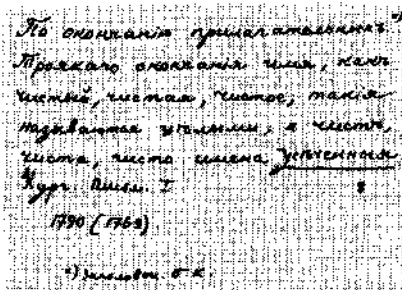 По окончанію прилагательныхъ *)
Троякаго окончанія имя, какъ
чистый, чистая, чистое, такія
называются цѣлыми, а чистъ,
чиста, чисто имена усѣченныя
Кург. Письм. I
1790 (1769).
*) Заголовок